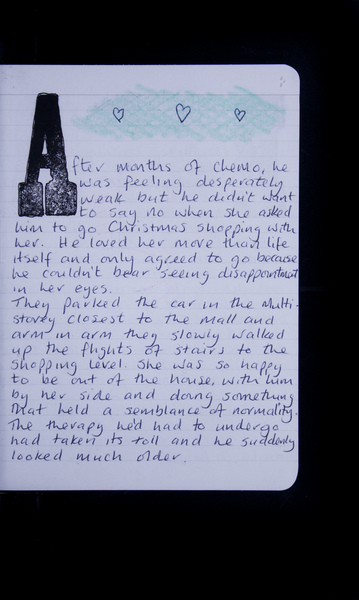 After months of chemo, he
was feeling desperately
weak but he didn't want
to say no when she asked
him to go Christmas shopping with
her. He loved her more than life
itself and only agreed to go because
he couldn't bear seeing disappointment
in her eyes.
They parked the car in the multi-
storey closest to the mall and
arm in arm they slowly walked
up the flights of stairs to the
shopping level. She was so happy
to be out of the house, with him
by her side and doing something
that held a semblance of normality.
The therapy he'd had to undergo
had taken its toll and he suddenly
looked much older.